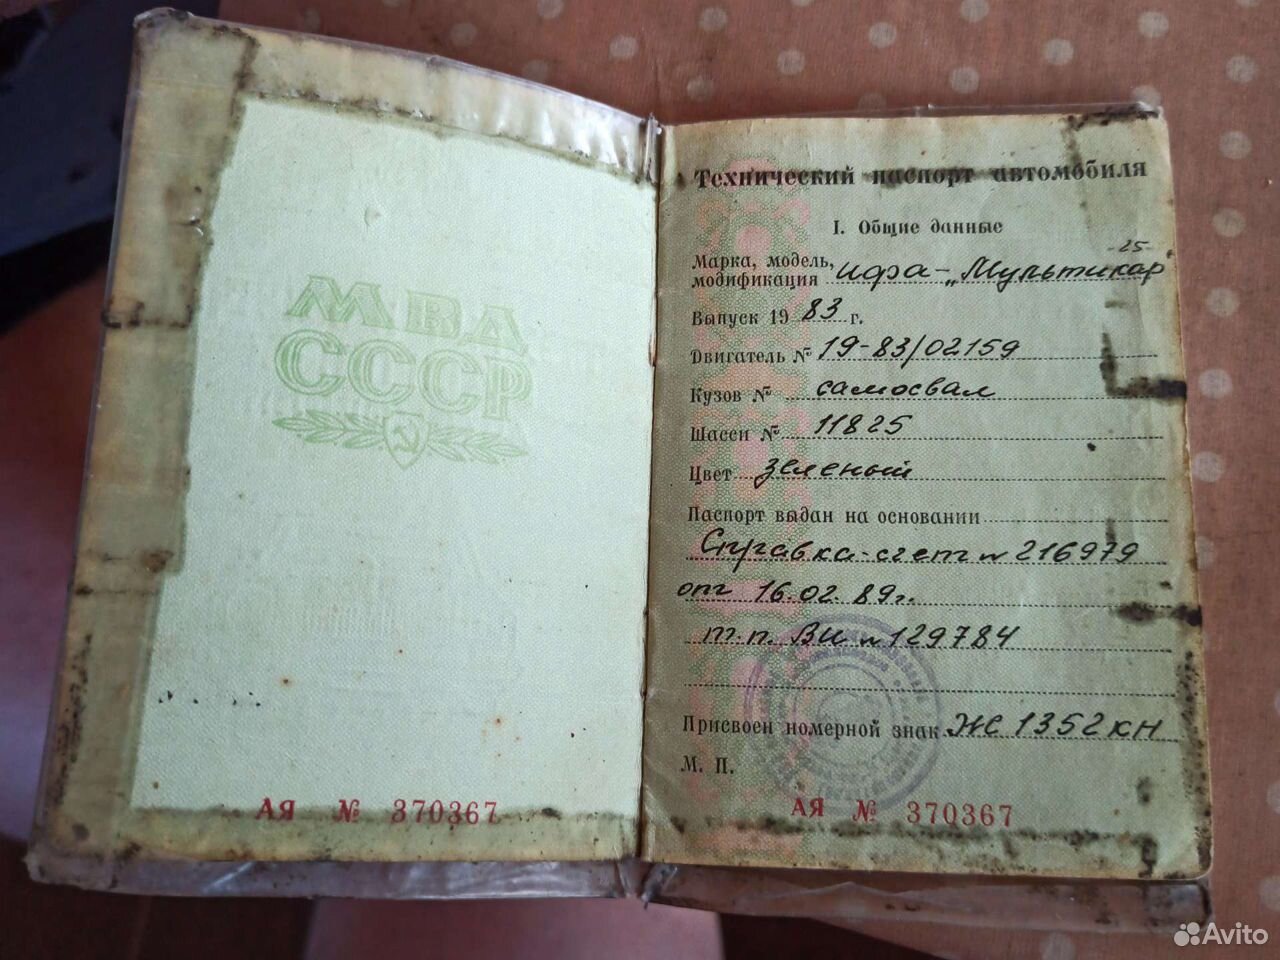 МВД
СССР
АЯ № 370367
Технический паспорт автомобиля
I. Общие данные
Марка, модель, модификация Ифа-„Мультикар" -25-
Выпуск 19 83 г.
Двигатель № 19-83/02159
Кузов № самосвал
Шасси № 11825
Цвет зеленый
Паспорт выдан на основании
Справка-счет № 216979
от 16.02.89г.
т.п. ВИ № 129784
Присвоен номерной знак ЖС 1352 КН
М. П.
АЯ № 370367
Avito